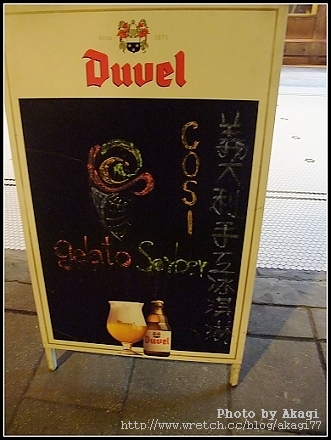 SINCE 1871
Duvel
COSI
義大利手工冰淇淋
gelato Sorber
Duvel
Photo by Akagi
http://www.wretch.cc/blog/akagi77